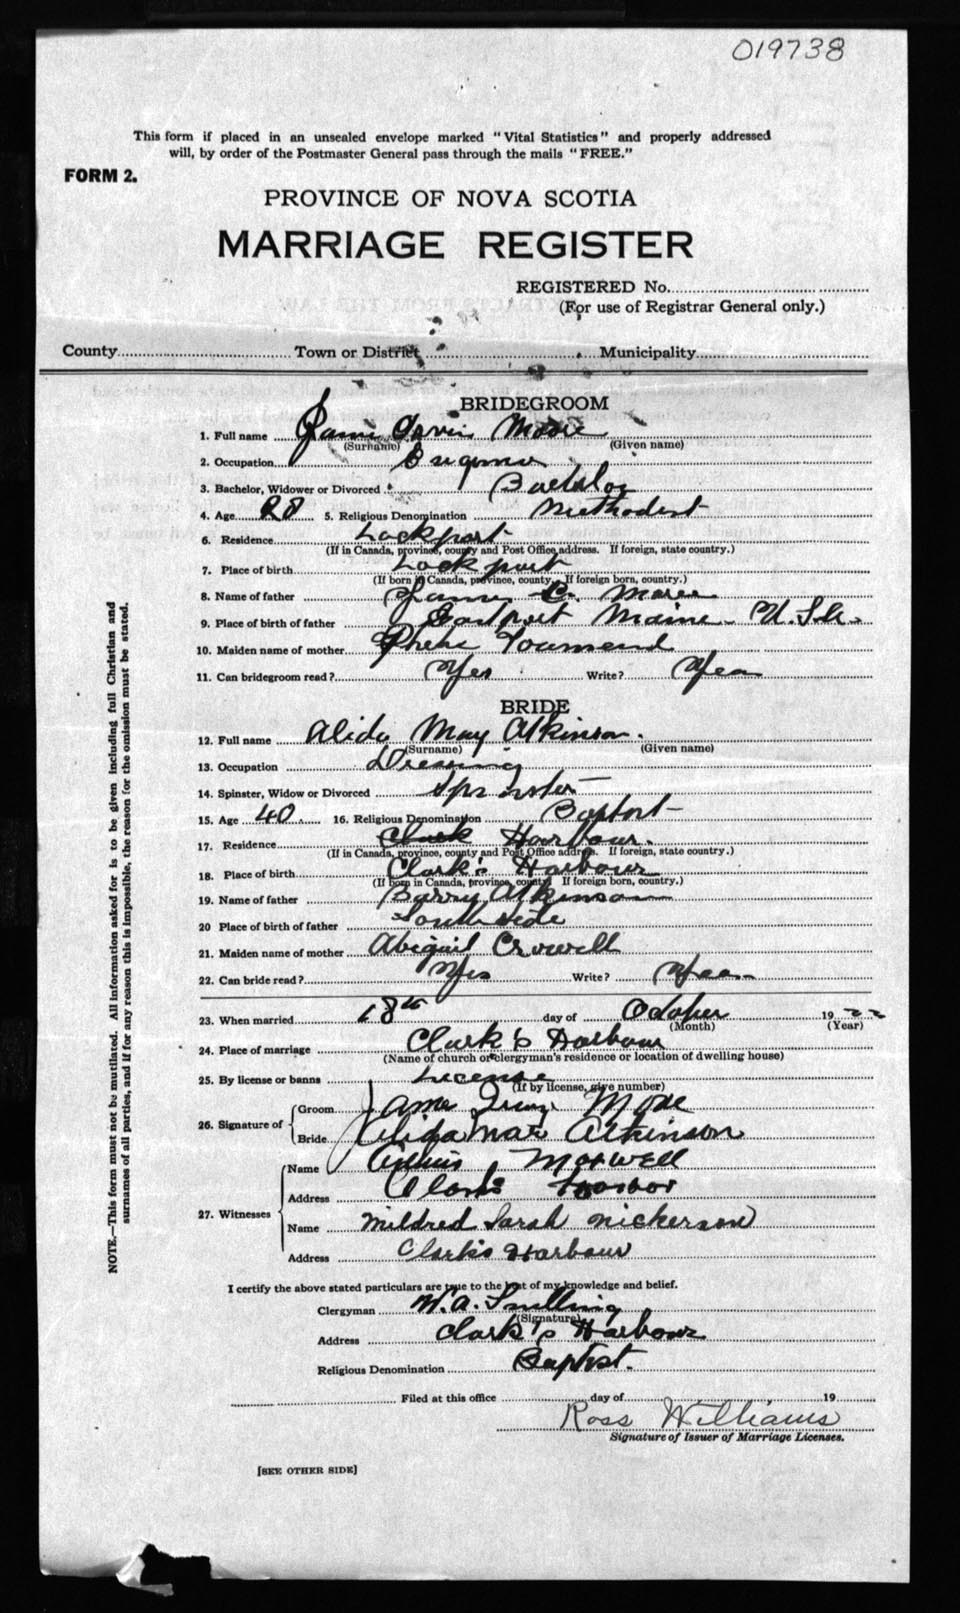 019738
This form if placed in an unsealed envelope marked "Vital Statistics" and properly addressed
will, by order of the Postmaster General pass through the mails "FREE."
FORM 2.
PROVINCE OF NOVA SCOTIA
MARRIAGE REGISTER
REGISTERED No.
(For use of Registrar General only.)
County Town or District Municipality
BRIDEGROOM
1. Full name Irvin
(Surname) (Given name)
2. Occupation
3. Bachelor, Widower or Divorced Bachelor
4. Age 28 5. Religious Denomination Methodist
6. Residence Lockport
(If in Canada, province, county and Post Office address. If foreign, state country.)
7. Place of birth Lockport
(If born in Canada, province, county. If foreign born, country.)
8. Name of father James C.
9. Place of birth of father Eastport Maine U.S.A.
10. Maiden name of mother Phebe Townsend
11. Can bridegroom read? Yes Write? Yes
BRIDE
12. Full name Alida May Atkinson.
(Surname) (Given name)
13. Occupation
14. Spinster, Widow or Divorced Spinster
15. Age 40 16. Religious Denomination Baptist
17. Residence Clark Harbour.
(If in Canada, province, county and Post Office address. If foreign, state country.)
18. Place of birth Clark's Harbour
(If born in Canada, province, county. If foreign born, country.)
19. Name of father Atkinson
20 Place of birth of father South Side
21. Maiden name of mother Abigail Crowell
22. Can bride read? Yes Write? Yes
23. When married 18th day of October 1922
(Month) (Year)
24. Place of marriage Clark's Harbour
(Name of church or clergyman's residence or location of dwelling house)
25. By license or banns License
(If by license, give number)
26. Signature of
Groom
Bride Alida Atkinson
27. Witnesses
Name Maxwell
Address Clarks Harbor
Name Mildred Sarah Nickerson
Address Clark's Harbour
I certify the above stated particulars are true to the best of my knowledge and belief.
Clergyman W. A. Snelling
(Signature)
Address Clark's Harbour
Religious Denomination Baptist.
Filed at this office day of 19
Ross Williams
Signature of Issuer of Marriage Licenses.
[SEE OTHER SIDE]
NOTE.—This form must not be mutilated. All information asked for is to be given including full Christian and
surnames of all parties, and if for any reason this is impossible, the reason for the omission must be stated.